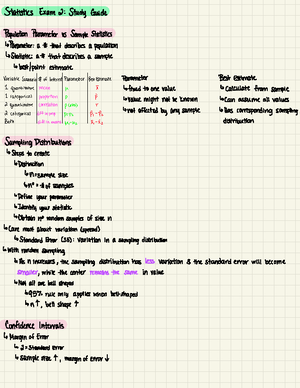 Statistics Exam 2: Study Guide
Population Parameter vs Sample Statistics
↳ Parameter: a # that describes a population
↳ Statistic: a # that describes a sample
↳ best/point estimate
Variable Summary # of Interest Parameter Best Estimate
1 quantitative mean
1 categorical proportion
2 quantitative correlation
2 categorical diff in prop
Both diff in means
Parameter
↳ Fixed to one value
↳ Value might not be known
↳ not affected by any sample
Best estimate
↳ Calculate from sample
↳ Can assume all values
↳ Has corresponding sampling
distribution
Sampling Distributions
↳ Steps to create
↳ Distinction
↳ n = sample size
↳ n* = # of samples
↳ Define your parameter
↳ Identify your statistic
↳ Obtain n* random samples of size n
↳ Care most about variation (spread)
↳ Standard Error (SE): variation in a sampling distribution
↳ With random sampling
↳ As n increases, the sampling distribution has less variation & the standard error will become
smaller, while the center remains the same in value
↳ Not all are bell shaped
↳ 95% rule only applies when bell-shaped
↳ n ↑, bell shape ↑
Confidence Intervals
↳ Margin of Error
↳ 2 × Standard error
↳ Sample size ↑, margin of error ↓